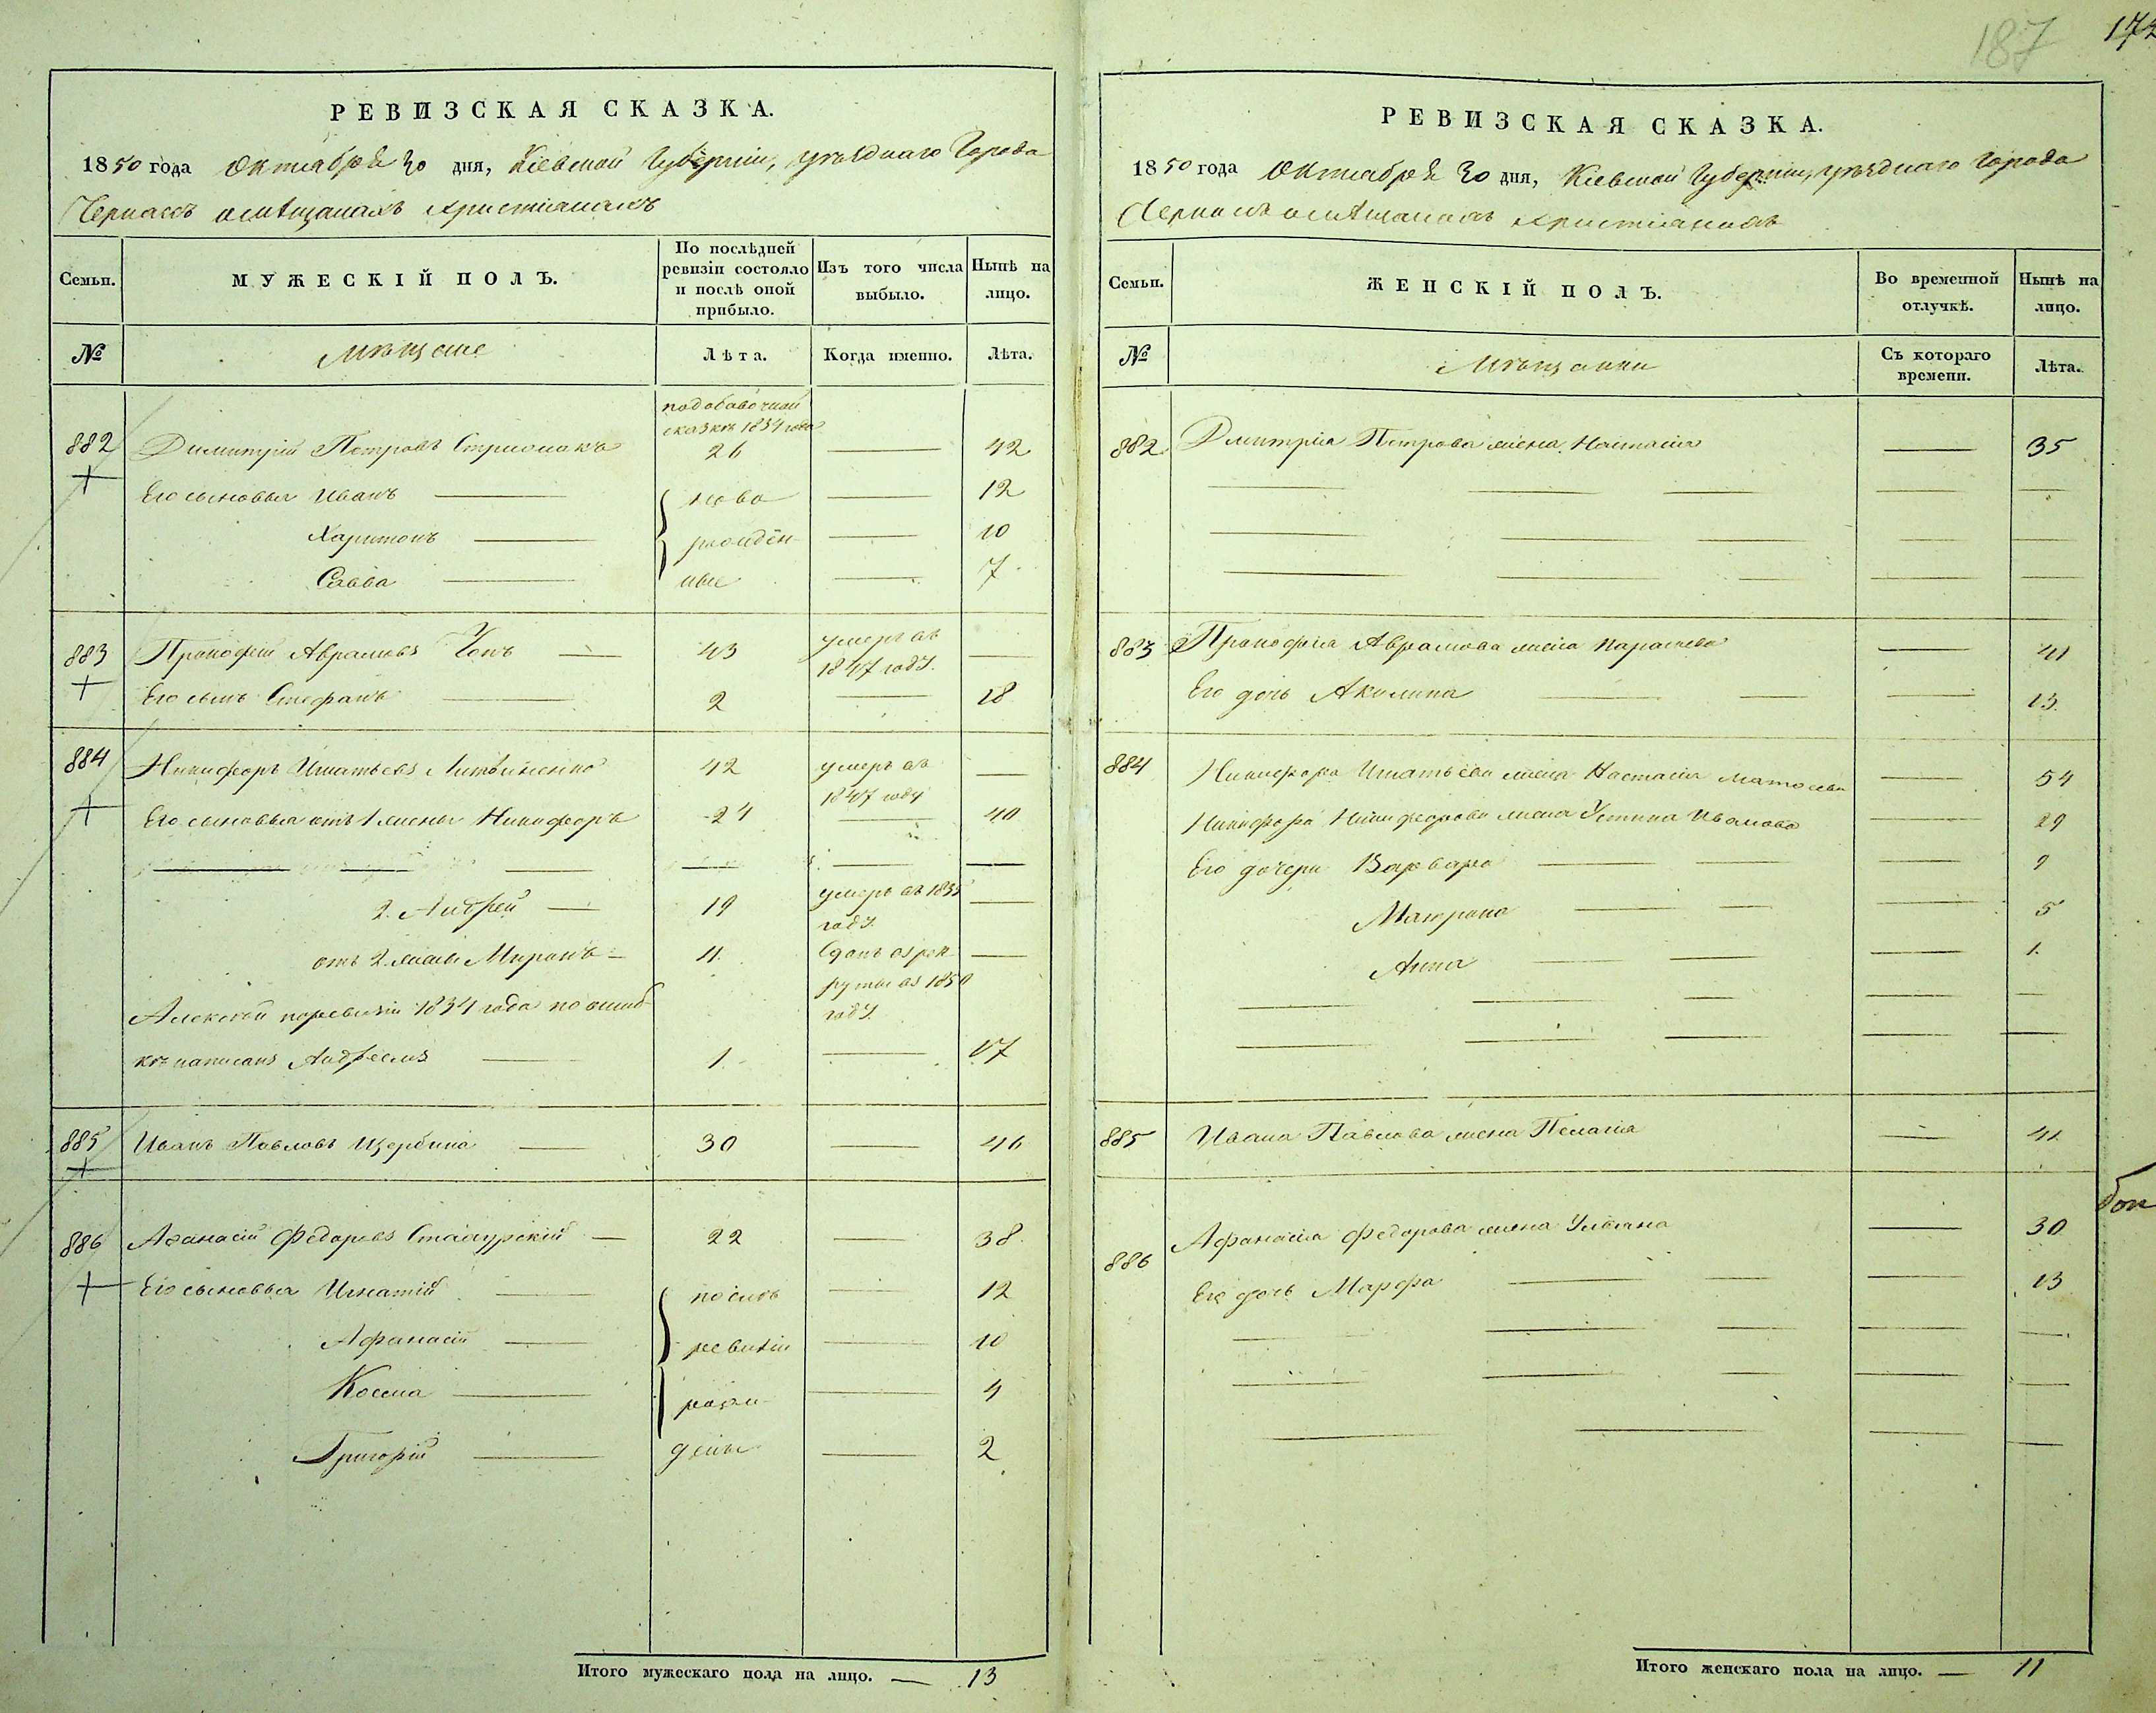 187
173
РЕВИЗСКАЯ СКАЗКА.
1850 года Октября 30 дня, Кіевской Губерніи, уѣзднаго Города
Черкасъ о мѣщанахъ христіанахъ
Семьи. МУЖЕСКІЙ ПОЛЪ. По послѣдней ревизіи состояло и послѣ оной прибыло. Изъ того числа выбыло. Нынѣ на лицо.
№ Мѣщане Лѣта. Когда именно. Лѣта.
по добавочной
сказкѣ 1834 года
882 Димитрій Петровъ 26 — 42
Его сыновья Иванъ — ново — 12
Харитонъ — рожден — 10
Савва — ные — 7
883 Прокофій Аврамовъ — 43 умеръ въ 1847 году. —
Его сынъ Стефанъ — 2 — 18
884 Никифоръ Игнатьевъ Литвиненко 42 умеръ въ 1847 году —
Его сыновья отъ 1 жены Никифоръ 24 — 40
2. Андрей — 19 умеръ въ 1835 году. —
отъ 2. жены Миронъ — 11. Сданъ въ рекруты въ 1850 году. —
Алексѣй по ревизіи 1834 года по ошиб-
кѣ написанъ Андреемъ — 1. — 17
885 Иванъ Павловъ Щербина — 30 — 46
886 Афанасій Федоровъ — 22 — 38
Его сыновья Игнатій — послѣ — 12
Афанасій — ревизіи — 10
Косма — рож — 4
Григорій — дены — 2
Итого мужескаго пола на лицо. — 13
РЕВИЗСКАЯ СКАЗКА.
1850 года Октября 30 дня, Кіевской Губерніи, уѣзднаго Города
Черкасъ о мѣщанахъ христіанахъ
Семьи. ЖЕНСКІЙ ПОЛЪ. Во временной отлучкѣ. Нынѣ на лицо.
№ Мѣщанки Съ котораго времени. Лѣта.
882 Дмитрія Петрова жена Настасія — 35
883 Прокофія Аврамова жена Параскева — 41
Его дочь Акилина — 13
884 Никифора Игнатьева жена Настасія — 54
Никифора Никифорова жена Устина Иванова — 29
Его дочери Варвара — 9
Матрона — 5
Анна — 1.
885 Ивана Павлова жена Пелагія — 41
886 Афанасія Федорова жена Ульяна — 30
Его дочь Марфа — 13
Итого женскаго пола на лицо. — 11